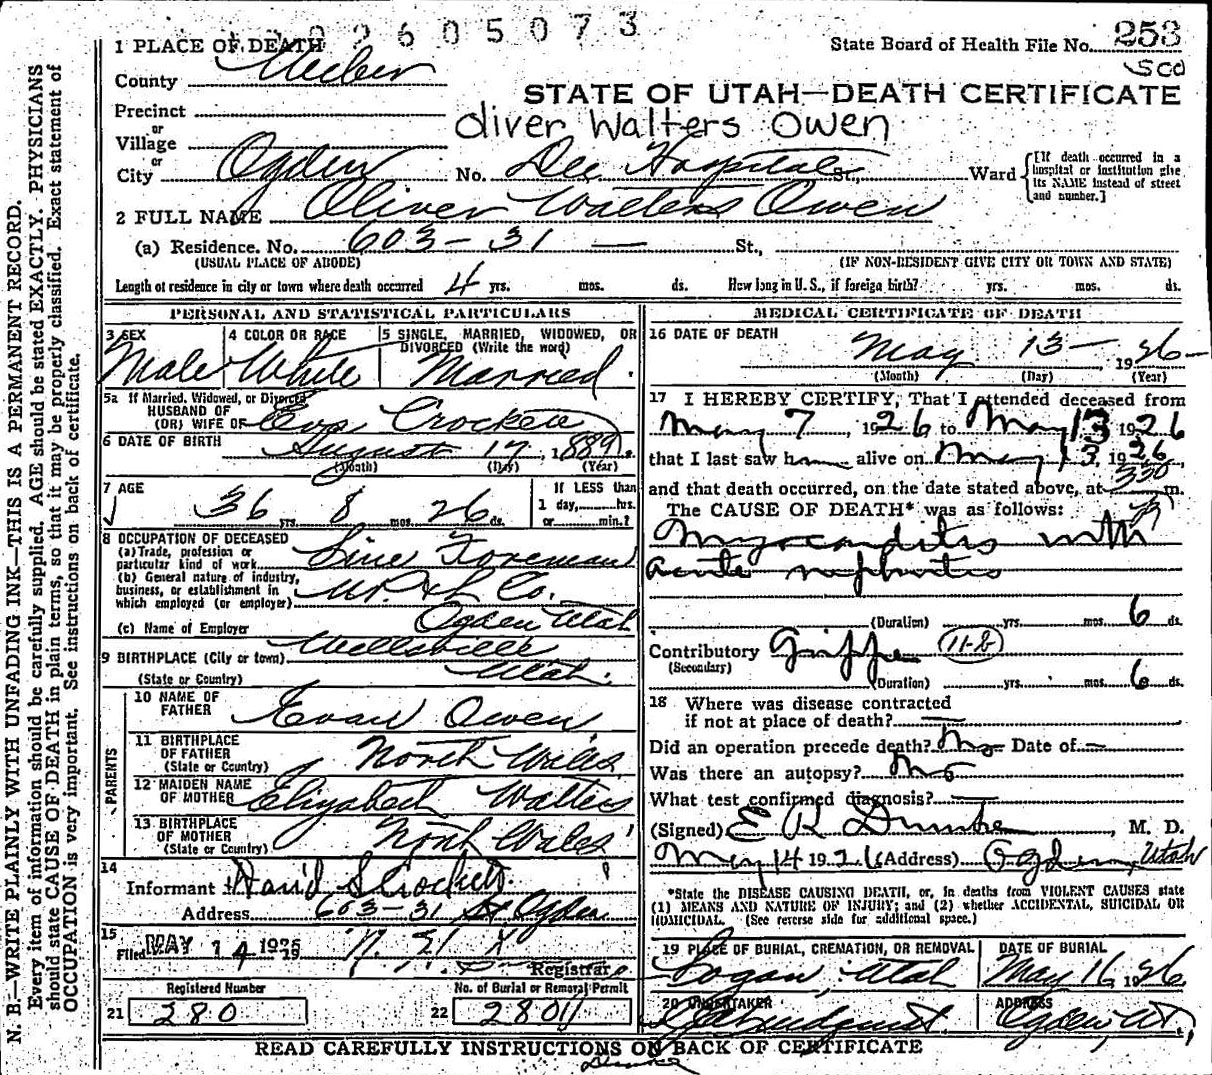 2605073
1 PLACE OF DEATH
State Board of Health File No. 253
County Weber
STATE OF UTAH—DEATH CERTIFICATE
Precinct
or
Village
Oliver Walters Owen
or
City Ogden No. Dee Hospital St., Ward
[If death occurred in a hospital or institution give its NAME instead of street and number.]
2 FULL NAME Oliver Walters Owen
(a) Residence. No. 603-31 — St.,
(USUAL PLACE OF ABODE) (IF NON-RESIDENT GIVE CITY OR TOWN AND STATE)
Length of residence in city or town where death occurred 4 yrs. mos. ds. How long in U. S., if foreign birth? yrs. mos. ds.
PERSONAL AND STATISTICAL PARTICULARS
3 SEX
Male
4 COLOR OR RACE
White
5 SINGLE, MARRIED, WIDOWED, OR
DIVORCED (Write the word)
Married
5a If Married, Widowed, or Divorced
HUSBAND OF
(OR) WIFE OF Eva Crockett
6 DATE OF BIRTH August 17, 1889.
(Month) (Day) (Year)
7 AGE
36 yrs. 8 mos. 26 ds.
If LESS than
1 day, hrs.
or min.?
8 OCCUPATION OF DECEASED
(a) Trade, profession or
particular kind of work Line Foreman
(b) General nature of industry,
business, or establishment in
which employed (or employer) U.P. & L Co.
(c) Name of Employer Ogden Utah
9 BIRTHPLACE (City or town) Wellsville
(State or Country) Utah.
PARENTS
10 NAME OF
FATHER Evan Owen
11 BIRTHPLACE
OF FATHER
(State or Country) North Wales
12 MAIDEN NAME
OF MOTHER Elizabeth Walters
13 BIRTHPLACE
OF MOTHER
(State or Country) North Wales
14
Informant David S Crockett
Address 603-31 St Ogden
15
Filed MAY 14 1926
Registrar
Registered Number
21 280
No. of Burial or Removal Permit
22 2801
MEDICAL CERTIFICATE OF DEATH
16 DATE OF DEATH
May 13— 1926—
(Month) (Day) (Year)
17 I HEREBY CERTIFY, That I attended deceased from
May 7, 1926 to May 13 1926
that I last saw h alive on May 13, 1926
and that death occurred, on the date stated above, at 330 m.
The CAUSE OF DEATH* was as follows:
Myocarditis with
acute nephritis
(Duration) yrs. mos. 6 ds.
Contributory Grippe 11-B
(Secondary)
(Duration) yrs. mos. 6 ds.
18 Where was disease contracted
if not at place of death? —
Did an operation precede death? No Date of —
Was there an autopsy? No
What test confirmed diagnosis? —
(Signed) E R Dumke, M. D.
May 14 1926 (Address) Ogden, Utah
*State the DISEASE CAUSING DEATH, or, in deaths from VIOLENT CAUSES state
(1) MEANS AND NATURE OF INJURY; and (2) whether ACCIDENTAL, SUICIDAL OR
HOMICIDAL. (See reverse side for additional space.)
19 PLACE OF BURIAL, CREMATION, OR REMOVAL
Logan, Utah
DATE OF BURIAL
May 16, 1926
20 UNDERTAKER
Lindquist
ADDRESS
Ogden, Ut,
READ CAREFULLY INSTRUCTIONS ON BACK OF CERTIFICATE
Dumke
N. B.—WRITE PLAINLY WITH UNFADING INK—THIS IS A PERMANENT RECORD.
Every item of information should be carefully supplied. AGE should be stated EXACTLY. PHYSICIANS
should state CAUSE OF DEATH in plain terms, so that it may be properly classified. Exact statement of
OCCUPATION is very important. See instructions on back of certificate.